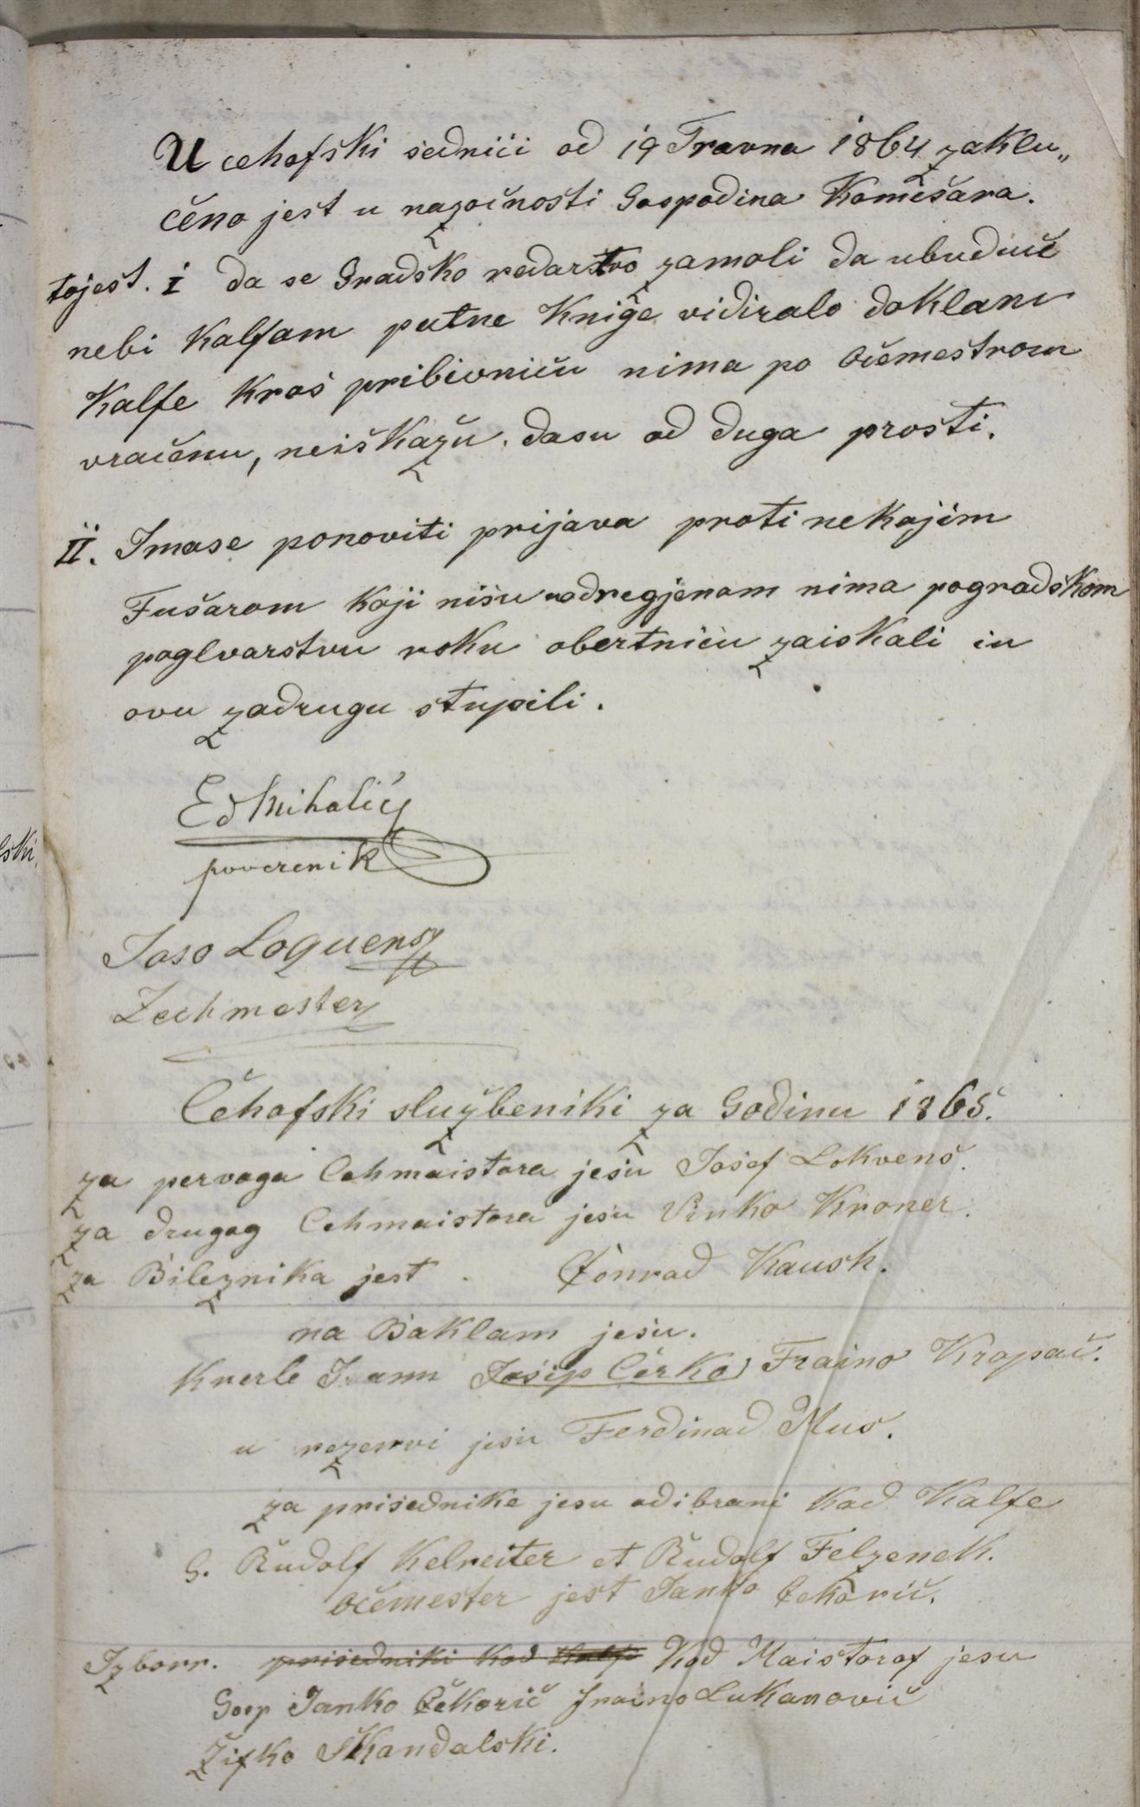 U cehofski sednici od 19 Travna 1864 zaklu„
čeno jest u nazočnosti Gospodina Komešara.
tojest. I da se Gradsko redarstvo zamoli da ubuduče
nebi Kalfam putne Knige vidiralo doklam
Kalfe Kroš pribivniču nima po Očemeštrom
vračenu, neiškažu. dasu od duga prosti.
II. Imase ponoviti prijava proti nekojim
Fušarom koji nisu odregjenom nima pogradskom
poglvarstvu roku obertnicu zaiskali iu
ovu zadrugu stupili.
Ed Mihalić
poverenik
Joso Loquens
Zechmester
Čehofski službeniki za Godinu 1865.
za pervoga Cehmaistora jesu Josef Lokvenš.
za drugog Cehmaistora jesu Vinko Kroner.
za Bileznika jest . Conrad Kaush.
na Baklam jesu.
Knerle Ioann Josip Čerko) Fraino Kropač.
u rezervi jesu Ferdinad Mus.
za prisednike jesu odibrani Kod Kalfe
G. Rudolf Kelreiter et Rudolf Felzenek.
Očemester jest Janko Čekorič.
Izborr. prisedniki kod Kalfi Kod Maistorof jesu
Gosp Janko Čekorič fraino Lukanovič
Žifko Skandalski.